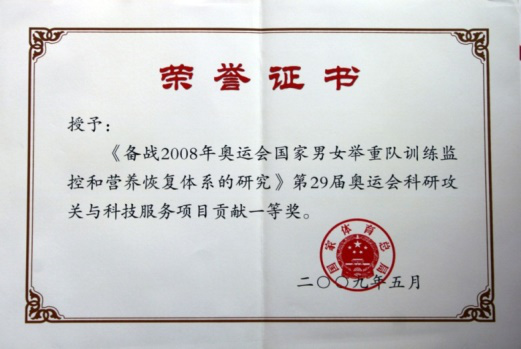 荣誉证书
授予：
《备战2008年奥运会国家男女举重队训练监
控和营养恢复体系的研究》第29届奥运会科研攻
关与科技服务项目贡献一等奖。
国家体育总局
二〇〇九年五月